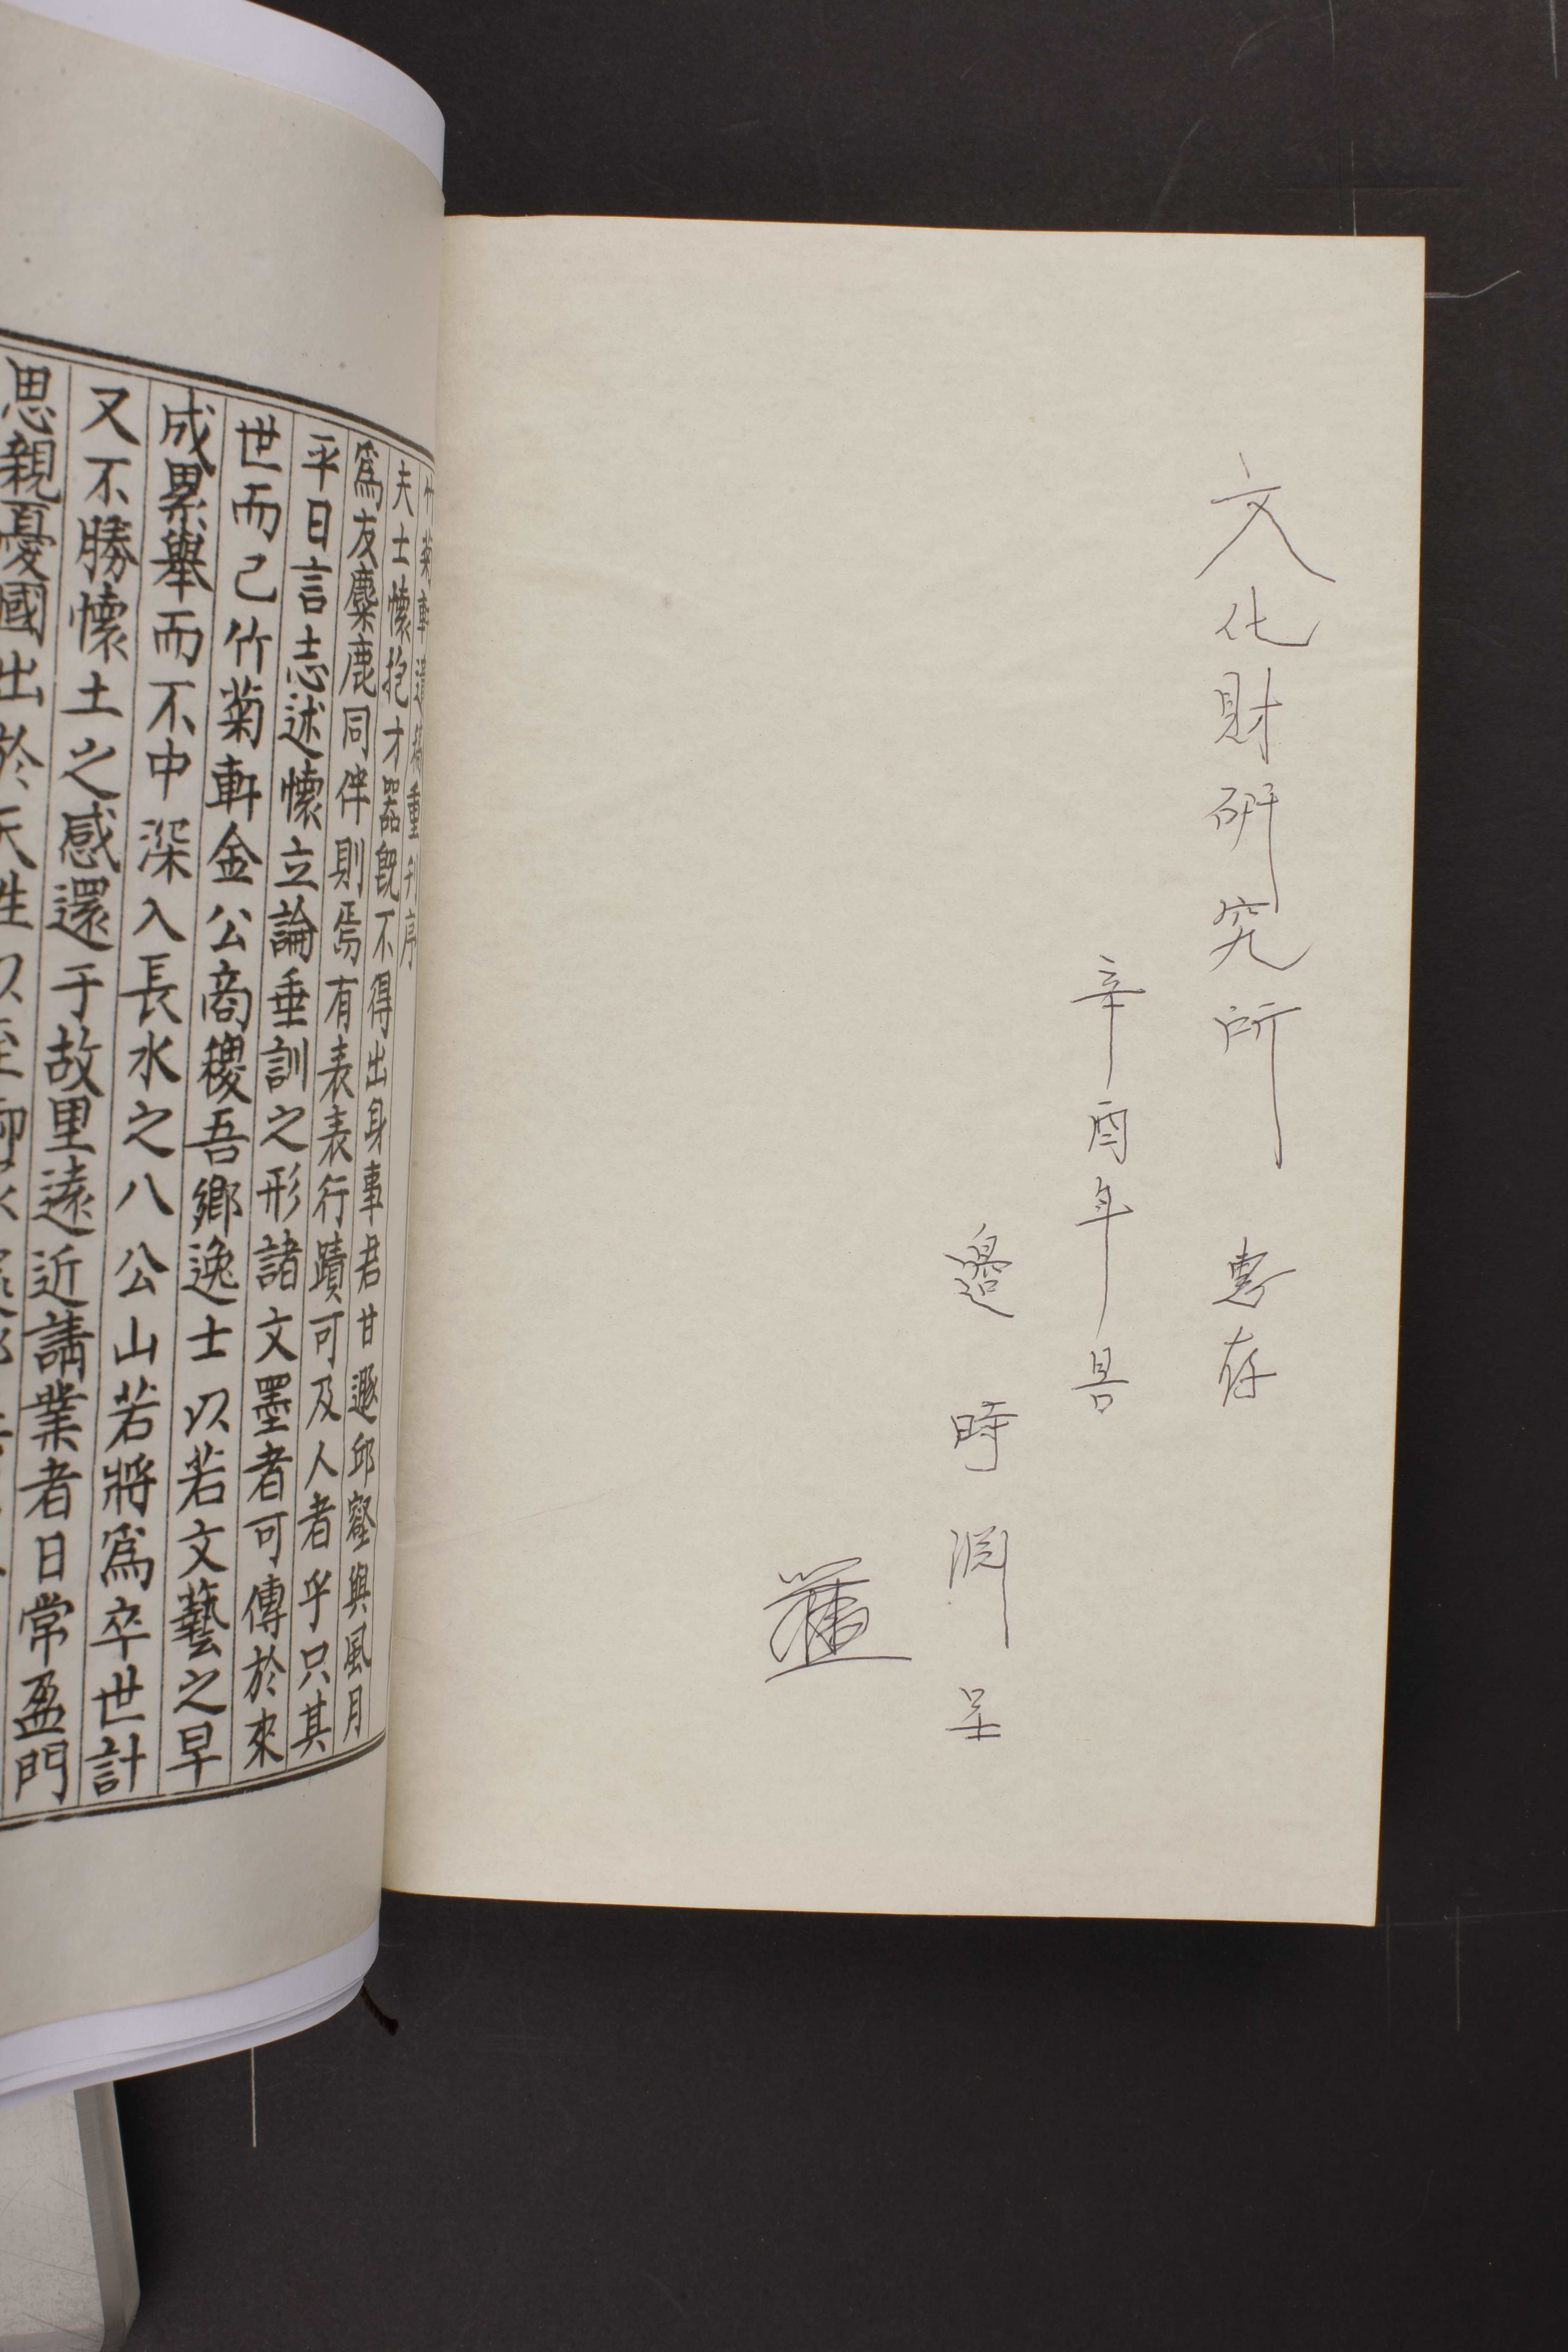 文化財研究所 惠存
辛酉年 暑
邊 時 淵 呈
竹菊軒遺稿重刊序
夫士懷抱才器旣不得出身事君甘遯邱壑與風月
爲友麋鹿同伴則焉有表表行蹟可及人者乎只其
平日言志述懷立論垂訓之形諸文墨者可傳於來
世而己竹菊軒金公商稷吾鄕逸士以若文藝之早
成累擧而不中深入長水之八公山若將爲卒世計
又不勝懷土之感還于故里遠近請業者日常盈門
思親憂國出於天性以至